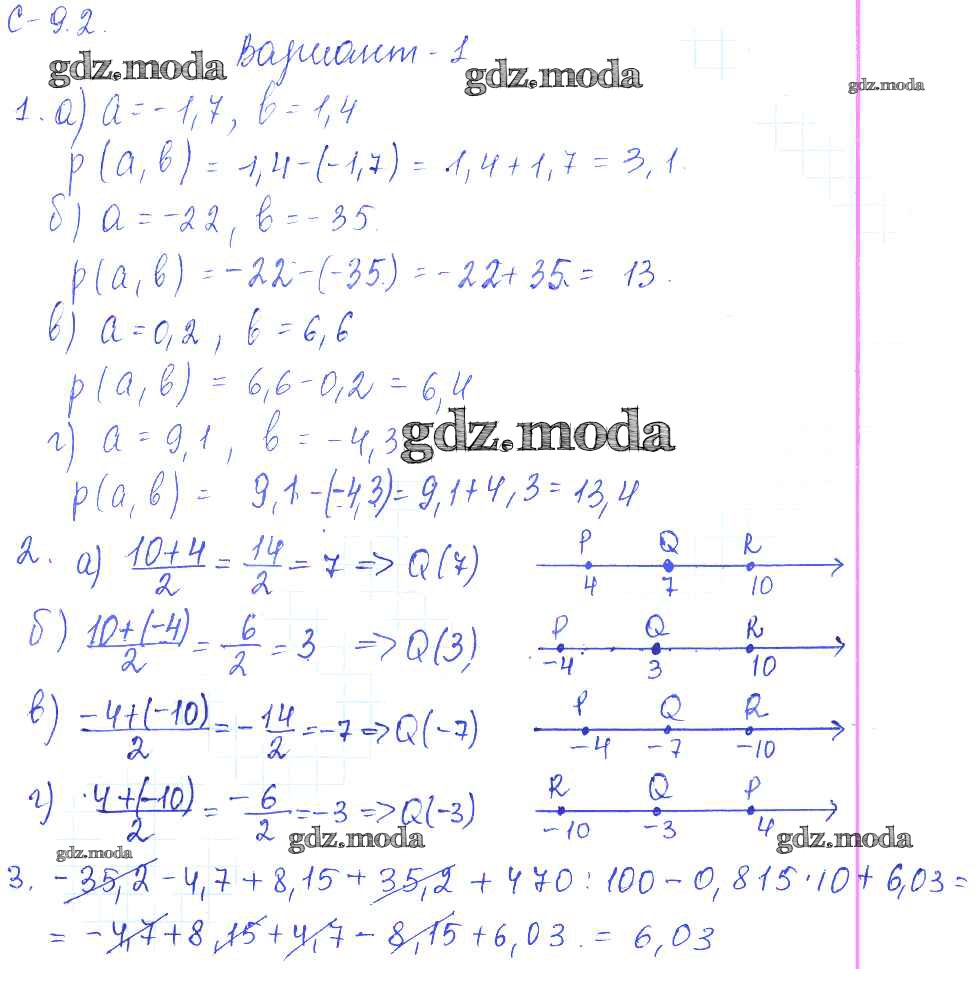 С-9.2.
Вариант-1
gdz.moda gdz.moda gdz.moda
1. а) a = -1,7, b = 1,4
p(a, b) = 1,4 - (-1,7) = 1,4 + 1,7 = 3,1.
б) a = -22, b = -35.
p(a, b) = -22 - (-35) = -22 + 35 = 13.
в) a = 0,2, b = 6,6
p(a, b) = 6,6 - 0,2 = 6,4
г) a = 9,1, b = -4,3 gdz.moda
p(a, b) = 9,1 - (-4,3) = 9,1 + 4,3 = 13,4
2. а) (10+4)/2 = 14/2 = 7 => Q(7) P Q R
4 7 10
б) (10+(-4))/2 = 6/2 = 3 => Q(3) P Q R
-4 3 10
в) (-4+(-10))/2 = -14/2 = -7 => Q(-7) P Q R
-4 -7 -10
г) (4+(-10))/2 = -6/2 = -3 => Q(-3) R Q P
-10 -3 4
gdz.moda gdz.moda gdz.moda
3. -35,2 - 4,7 + 8,15 + 35,2 + 470 : 100 - 0,815 · 10 + 6,03 =
= -4,7 + 8,15 + 4,7 - 8,15 + 6,03 = 6,03